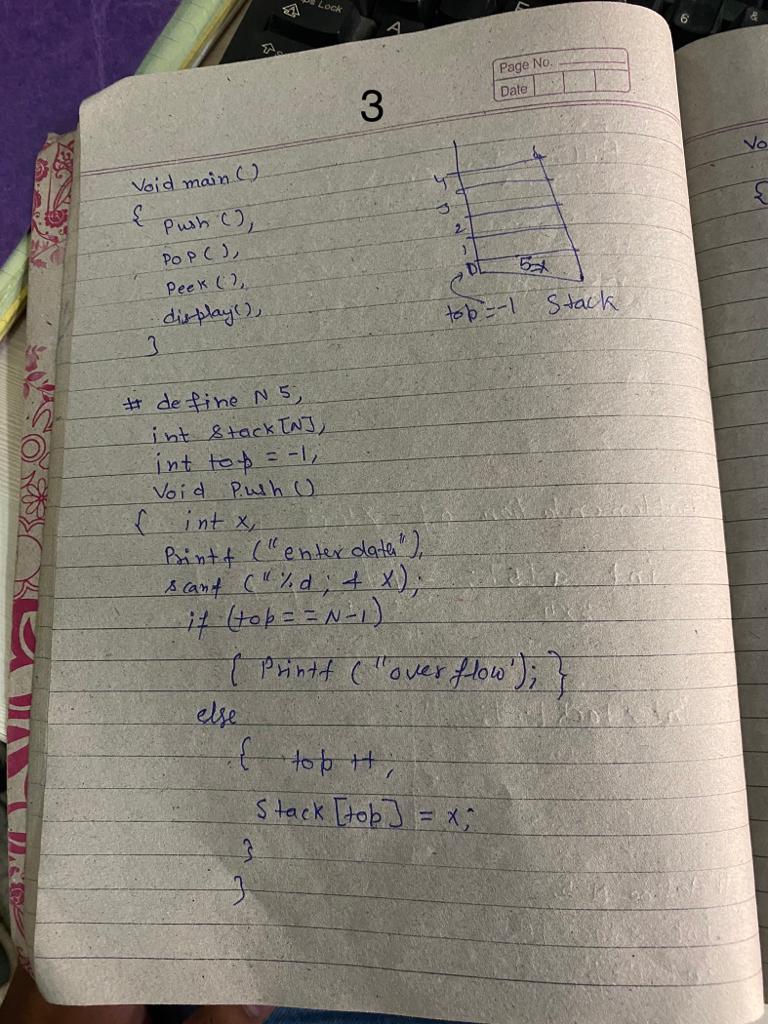 Page No.
Date
3
Void main ()
{
Push (),
POP (),
Peek (),
display(),
}
4
3
2
1
0
5
top = -1 Stack
# define N 5,
int Stack[N],
int top = -1,
Void Push ()
{ int x,
Printf ("enter data"),
scanf ("%d ; & x);
if (top == N-1)
{ Printf ("over flow'); }
else
{ top ++,
Stack [top] = x;
}
}
Vo
{